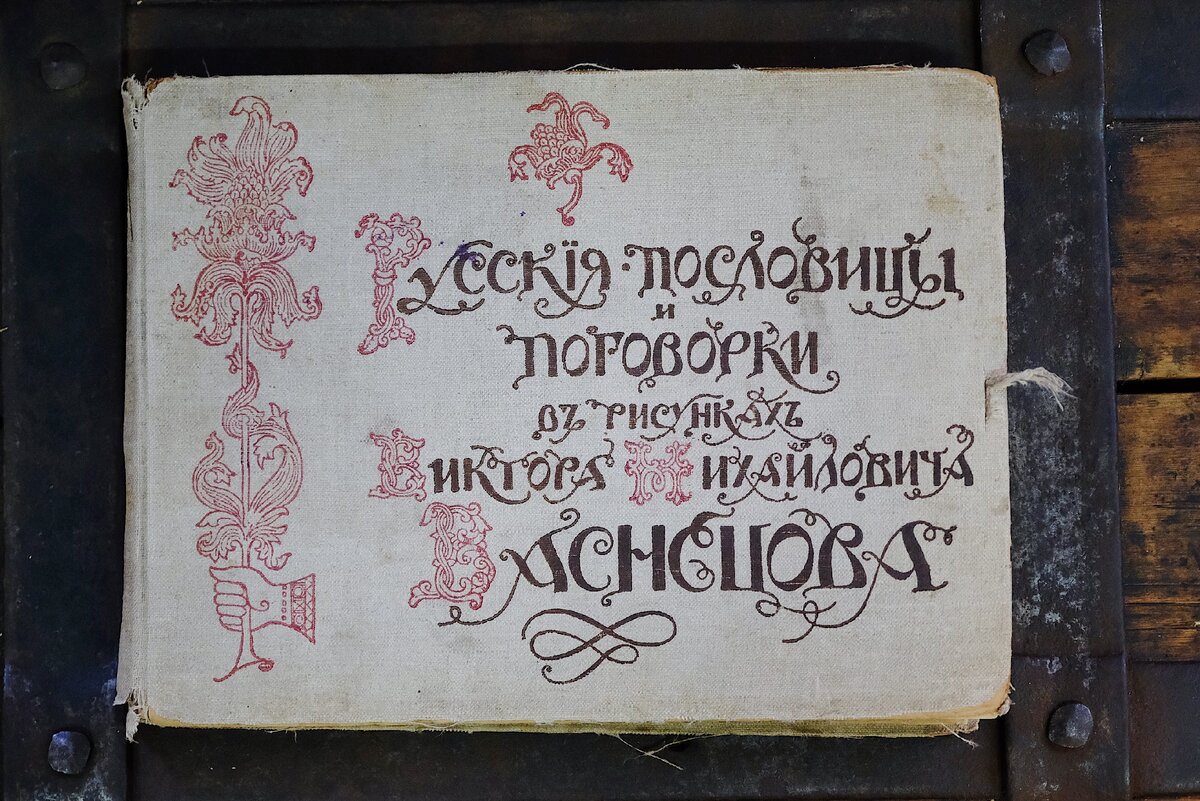 Русскія · пословицы
и
поговорки
въ рисункахъ
Виктора Михайловича
Васнецова